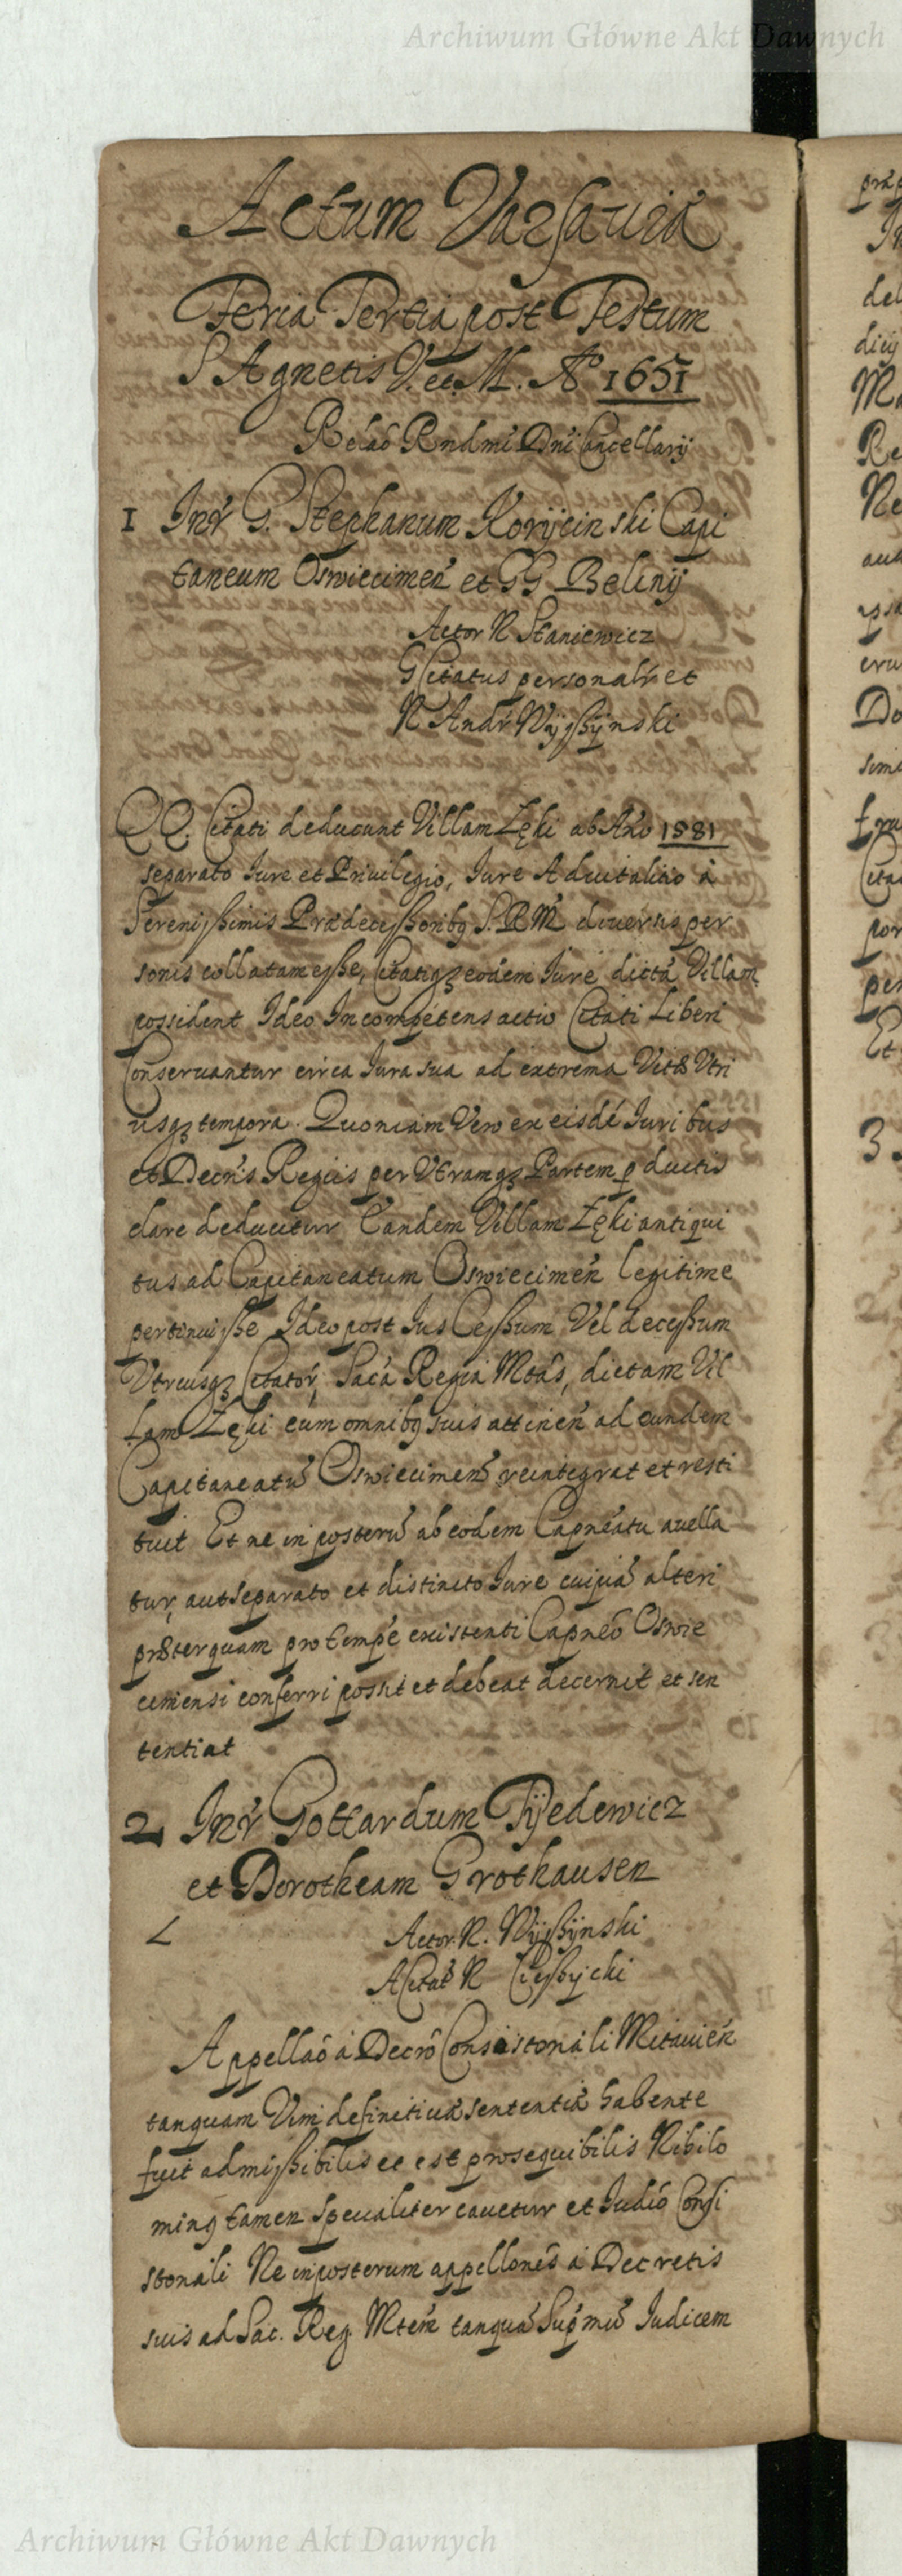 Archiwum Główne Akt Dawnych
Actum Varsauiæ
Feria Tertia post Festum
S Agnetis V. et M. Aº 1651
Relaõ Rndmi Dni Cancellarij
1 Intr G. Stephanum Korijcinski Capi
taneum Oswiecimeñ et GG Beliny
Actor N Staniewicz
G Citatus personalr et
N Andr Wijssijnski
GG. Citati deducunt Villam Łęki ab Año 1581
separato Iure et Priuilegio, Iure Aduitalitio à
Serenissimis Prædecessoribq S.R.M. diuersis per
sonis collatam esse, Citatiqz eodem Iure dictã Villam
possident Ideo Incompetens actio Citati Liberi
Conseruantur circa Iura sua ad extrema Vitæ Vtri
usqz tempora. Quoniam Vero ex eisdẽ Iuribus
et Decris Regiis per Vtramqz Partem pductis
clare deducitur Eandem Villam Łęki antiqui
tus ad Capitaneatum Oswiecimeñ legitime
pertinuisse Ideo post Ius Cessum Vel decessum
Vtriusqz Citator, Sacã Regia Mtas, dictam Vil
lam Łęki cum omnibq suis attineñ ad eundem
Capitaneatũ Oswiecimeñ reintegrat et resti
tuit Et ne in posterũ ab eodem Capneatu auella
tur, aut separato et distincto Iure cuipiã alteri
præterquam pro tempe existenti Capneõ Oswie
cimensi conferri possit et debeat decernit et sen
tentiat
2 Intr Gottardum Tijedewicz
et Dorotheam Grothausen
Actor N. Wijssijnski
A Citat N Ciessijcki
Appellaõ à Decrõ Consistoriali Mitauieñ
tanquam Vim definitiuæ sententiæ habente
fuit admissibilis et est prosequibilis Nihilo
minq tamen specialiter cauetur et Iudiõ Consi
storiali Ne in posterum appellones à Decretis
suis ad Sac. Reg. Mtem tanquã Supmũ Iudicem
3.
Archiwum Główne Akt Dawnych